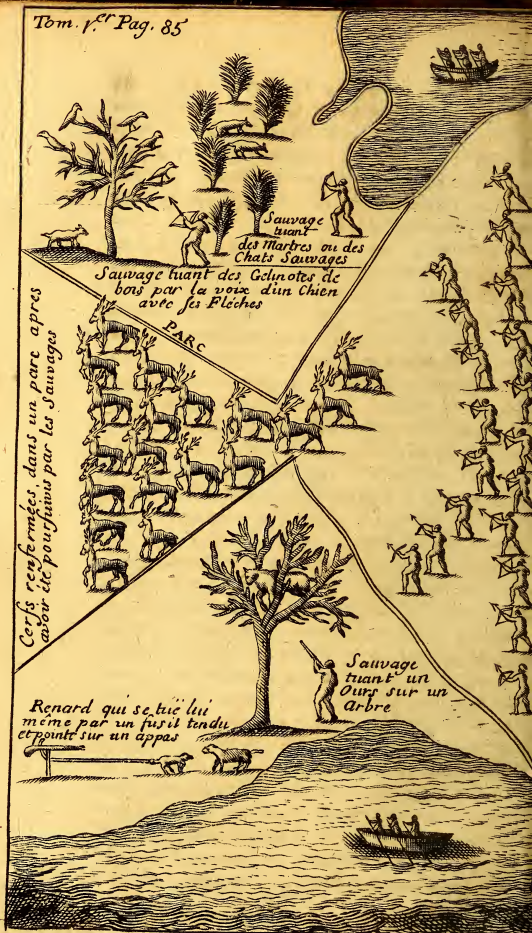 Tom. 1.er Pag. 85
Sauvage
tuant
des Martres ou des
Chats Sauvages
Sauvage tuant des Gelinotes de
bois par la voix d'un Chien
avec ses Fléches
PARC
Cerfs renfermées dans un parc apres
avoir été poursuivis par les Sauvages
Sauvage
tuant un
Ours sur un
Arbre
Renard qui se tüe lui
même par un fusil tendu
et pointé sur un appas